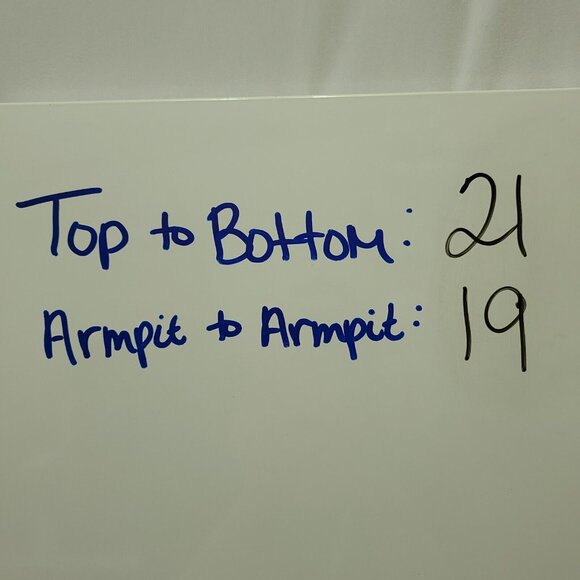 Top to Bottom: 21
Armpit to Armpit: 19